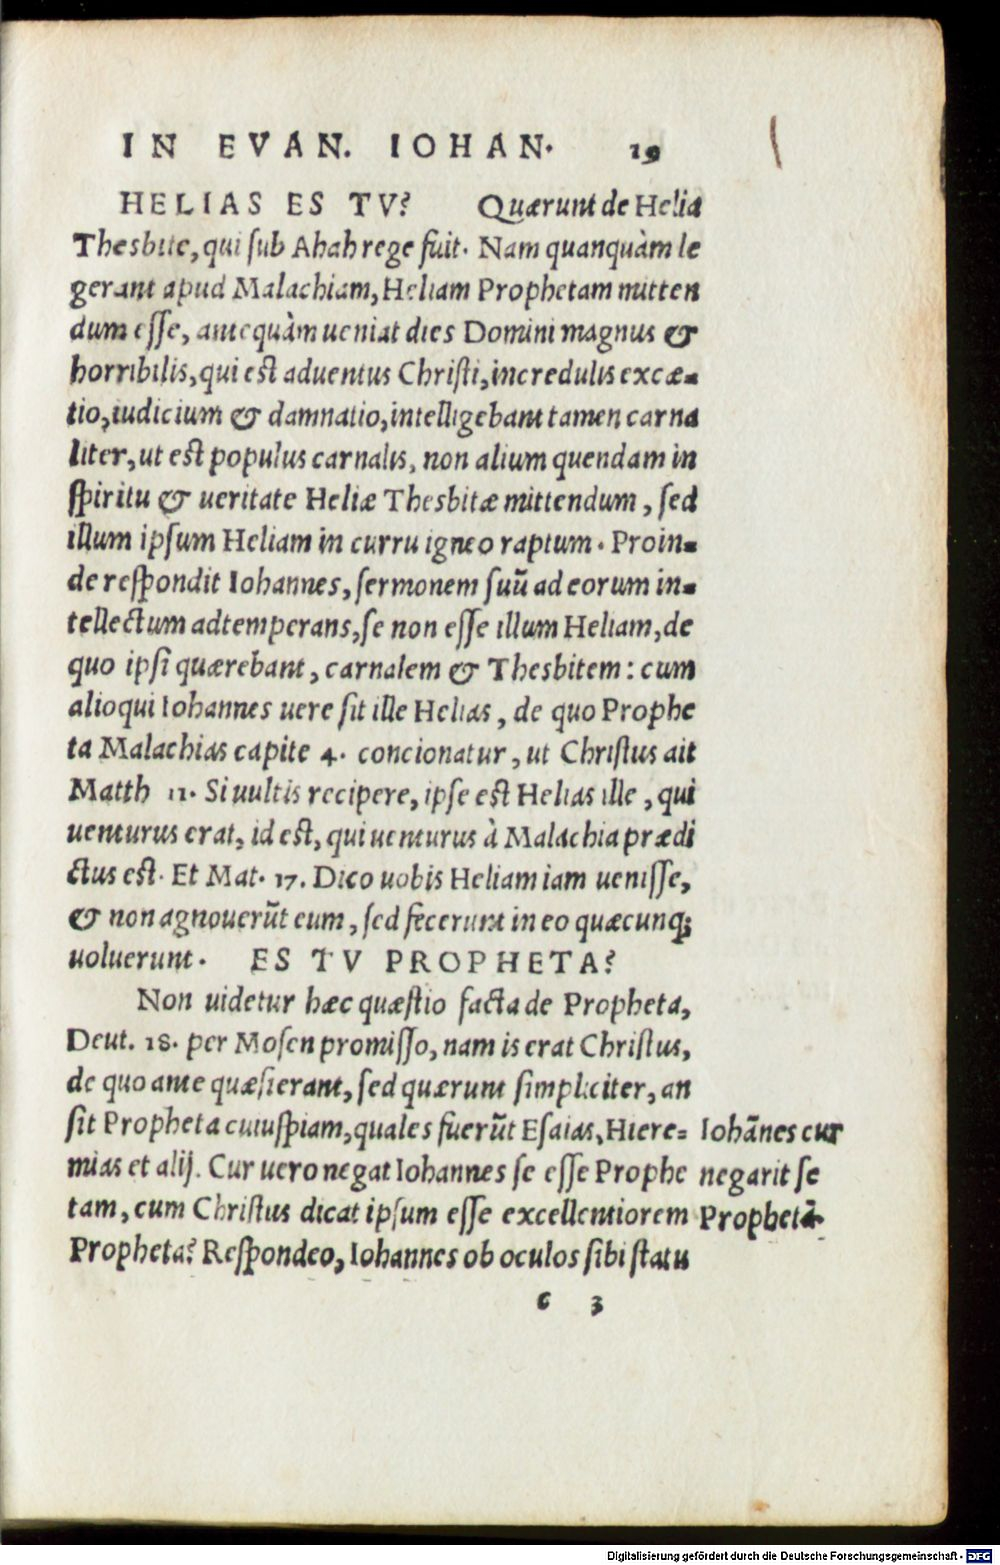 IN EVAN. IOHAN. 19
HELIAS ES TV? Quærunt de Helia
Thesbite, qui sub Ahab rege fuit. Nam quanquàm le
gerant apud Malachiam, Heliam Prophetam mitten
dum esse, antequàm ueniat dies Domini magnus &
horribilis, qui est aduentus Christi, incredulis excæ-
tio, iudicium & damnatio, intelligebant tamen carna
liter, ut est populus carnalis, non alium quendam in
spiritu & ueritate Heliæ Thesbitæ mittendum, sed
illum ipsum Heliam in curru igneo raptum. Proin-
de respondit Iohannes, sermonem suū ad eorum in-
tellectum adtemperans, se non esse illum Heliam, de
quo ipsi quærebant, carnalem & Thesbitem: cum
alioqui Iohannes uere sit ille Helias, de quo Prophe
ta Malachias capite 4. concionatur, ut Christus ait
Matth 11. Si uultis recipere, ipse est Helias ille, qui
uenturus erat, id est, qui uenturus à Malachia prædi
ctus est. Et Mat. 17. Dico uobis Heliam iam uenisse,
& non agnouerūt eum, sed fecerunt in eo quæcunq;
uoluerunt. ES TV PROPHETA?
Non uidetur hæc quæstio facta de Propheta,
Deut. 18. per Mosen promisso, nam is erat Christus,
de quo ante quæsierant, sed quærunt simpliciter, an
sit Propheta cuiuspiam, quales fuerūt Esaias, Hiere=
mias et alij. Cur uero negat Iohannes se esse Prophe
tam, cum Christus dicat ipsum esse excellentiorem
Propheta? Respondeo, Iohannes ob oculos sibi statu
Iohānes cur
negarit se
Prophetā.
c 3
Digitalisierung gefördert durch die Deutsche Forschungsgemeinschaft - DFG